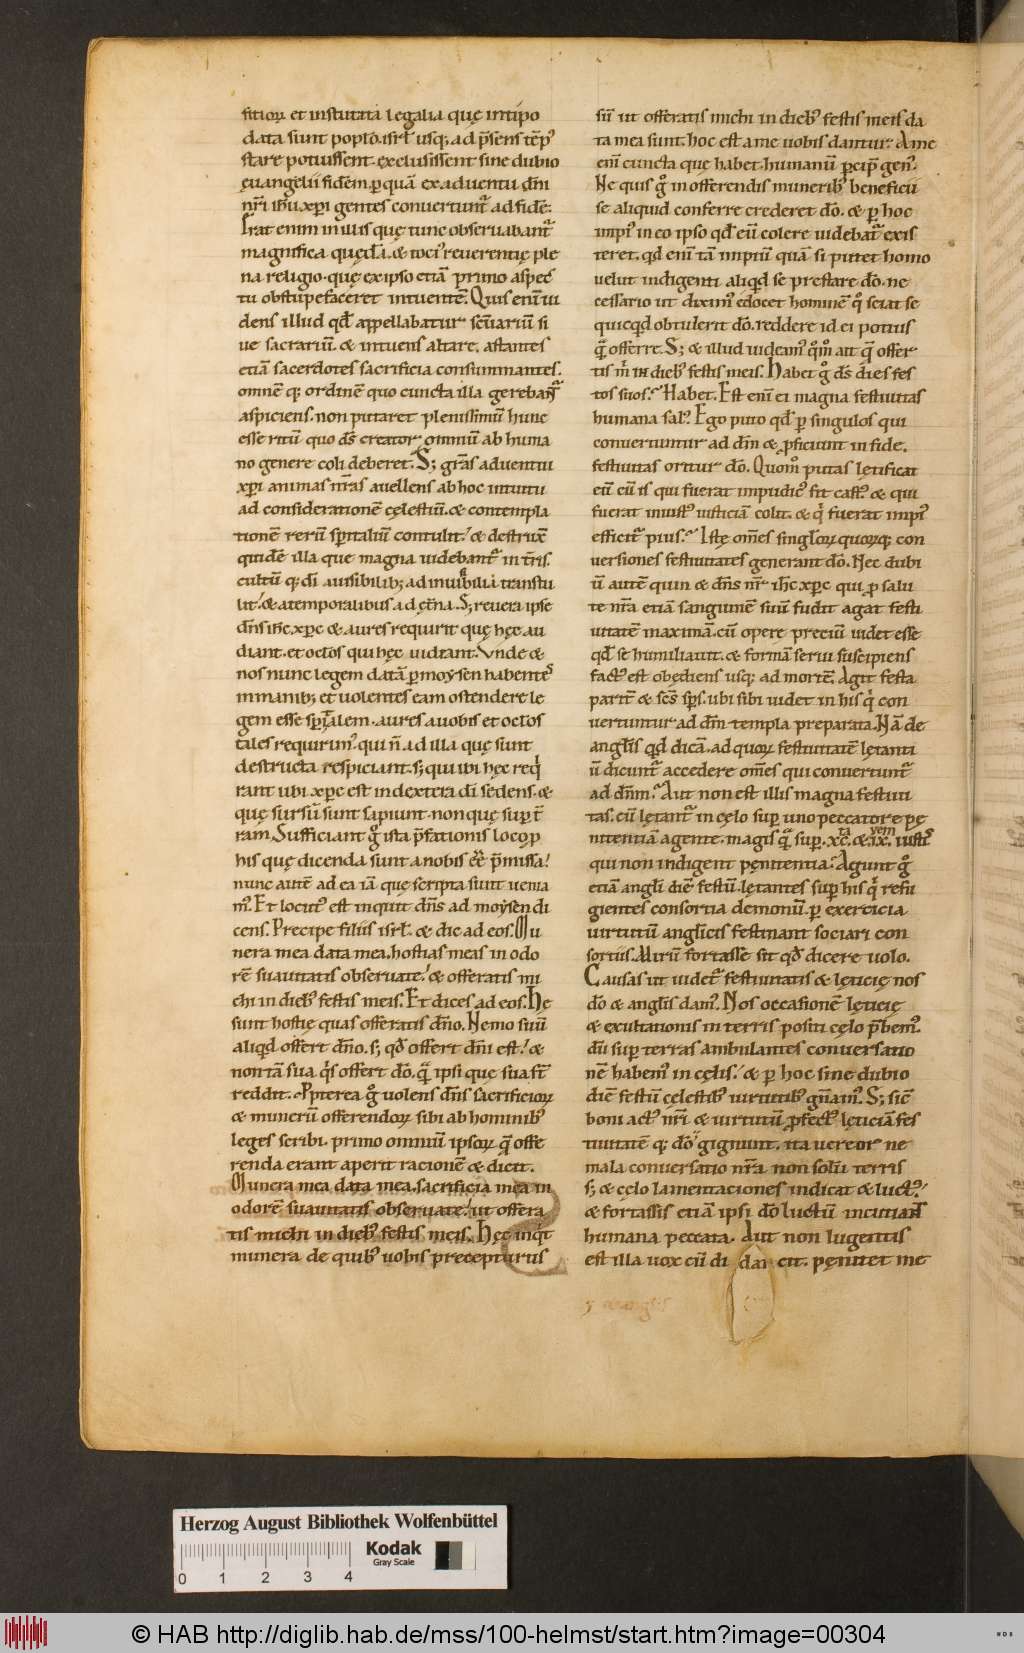 fitioꝝ et instituta legalia quę in tipo
data sunt poplo isrł usq; ad p̄sens tēpꝰ
stare potuissent. exclusissent sine dubio
ęuangelii fidēm. ꝑ quā ex aduentu dn̄i
nr̄i ihu xpi gentes conuertunt᷑ ad fidē.
Erat enim in illis quę tunc obseruabant᷑
magnifica quędā. & tociꝰ reuerentię ple
na religio. quę ex ipso etiā primo aspec
tu obstupefaceret intuentē. Quis enī ui
dens illud qd̄ appellabatur sc̄uariū si
ue sacrariū. & intuens altare. astantes
etiā sacerdotes sacrificia consummantes.
omnē q; ordinē quo cuncta illa gerebant᷑
aspiciens. non putaret plenissimū hunc
esse ritū quo ds̄ creator omniū ab huma
no genere coli deberet. S; gr̄as aduentui
xpi animas nr̄as auellens ab hoc intuitu
ad considerationē cęlestiū. & contempla
tionē rerū sp̄italiū contulit. & destruxit
quidē illa que magna uidebant᷑ in tr̄is.
cultū q; di a uisibilib; ad inuisibilia transtu
lit. & a temporalibus ad et̄na. S; reuera ipse
dn̄s ihc xpc & aures requirit quę hęc au
diant. et oclos qui hęc uidiant. Vnde &
nos nunc legem datā ꝑ moysen habentes
in manib; et uolentes eam ostendere le
gem esse sp̄italem. aures a uobis et oclos
tales requirimꝰ. qui n̄ ad illa quę sunt
destructa respiciant. s; qui ibi hęc req̇
rant ubi xpc est in dextera di sedens. &
quę sursū sunt sapiunt. non quę suꝑ t̄
ram. Sufficiant gͦ ista p̄fationis loco ꝓ
his quę dicenda sunt a nobis cc̄ p̄missa.
nunc autē ad ea iā quę scripta sunt uenia
mꝰ. Et locutꝰ est inquit dn̄s ad moysen di
cens. Precipe filiis isrł. & dic ad eos. Mu
nera mea data mea. hostias meas in odo
rē suauitatis obseruate. & offeratis mi
chi in diebꝰ festis meis. Et dices ad eos. Hę
sunt hostię quas offeratis dn̄o. Nemo suū
aliqd offert dn̄o. s; qd̄ offert dn̄i est. &
non tā sua q̇s offert dō. q̄ ipsi que sua st̄
reddit. Ꝓpterea gͦ uolens dn̄s sacrificioꝝ
& munerū offerendoꝝ sibi ab hominibꝰ
leges scribi. primo omniū ipsoꝝ q̄ offe
renda erant aperit racionē & dicit.
Munera mea data mea. sacrificia mea in
odorē suauitatis obseruate. ut offera
tis michi in diebꝰ festis meis. Hęc inq̇t
munera de quibꝰ uobis precepturus
sū ut offeratis michi in diebꝰ festis meis da
ta mea sunt. hoc est a me uobis dantur. A me
enī cuncta que habet humanū ꝑcip̄ genꝰ.
Ne quis gͦ in offerendis muneribꝰ beneficii
se aliquid conferre crederet dō. & ꝑ hoc
impiꝰ in eo ipso qd̄ eū colere uidebat᷑ exis
teret. qd enī tā impiū quā si putet homo
uelut indigenti aliqd se prestare dō. ne
cessario ut diximꝰ edocet hominē qͦ sciat se
quicqd obtulerit dō. reddere id ei potius
q̄ offerre. S; & illud uideamꝰ qͦmͦ ait q̄ offer
tis m̄ in diebꝰ festis meis. Habet gͦ ds̄ dies fes
tos suos. Habet. Est enī ei magna festiuitas
humana salꝰ. Ego puto qd̄ ꝑ singulos qui
conuertuntur ad dm̄ & ꝓficiunt in fide.
festiuitas oritur dō. Quomͦ putas lętificat
eū cū is qui fuerat impudicꝰ fit castꝰ. & qui
fuerat iniustꝰ iusticiā colit. & q̇ fuerat impiꝰ
efficit᷑ pius. Istę om̄es singloꝝ quoꝝq; con
uersiones festiuitates generant dō. Nec dubi
ū autē quin & dn̄s nr̄ ihc xpc qui ꝓ salu
te nr̄a etiā sanguinē suū fudit agat festi
uitatē maximā. cū opere preciū uidet esse
qd̄ se humiliauit. & formā serui suscipiens
factꝰ est obędiens usq; ad mortē. Agit festa
parit̄ & sc̄s sp̄s. ubi sibi uidet in his q̇ con
uertuntur ad dm̄ templa preparata. Nā de
anglis qd dicā. ad quoꝝ festiuitatē lętanti
ū dicunt᷑ accedere om̄es qui conuertunt᷑
ad dn̄m. Aut non est illis magna festiui
tas. cū lętant᷑ in cęlo suꝑ uno peccatore pę
nitentiā agente. magis q̄ suꝑ xc.ta &.ix.vem iustis
qui non indigent pęnitentia. Agunt gͦ
etiā angli diē festū. lętantes suꝑ his q̇ refu
gientes consortia demonū. ꝑ exercicia
uirtutū anglicis festinant sociari con
sortiis. Mirū fortasse sit qd̄ dicere uolo.
Causas ut uidet᷑ festiuitatis & lęticię nos
dō & anglis damꝰ. Nos occasionē lęticię
& exultationis in terris positi cęlo p̄bemꝰ.
dū suꝑ terras ambulantes conuersatio
nē habemꝰ in cęlis. & ꝑ hoc sine dubio
diē festū cęlestibꝰ uirtutibꝰ gn̄amꝰ. S; sic̄
boni actꝰ nr̄i & uirtutū ꝓfectꝰ lęticiā fes
tiuitatē q; dō gignunt. ita uereor ne
mala conuersatio nr̄a non solū terris
s; & cęlo lamentaciones indicat & luctꝰ.
& fortassis etiā ipsi dō luctū incutiant
humana peccata. Aut non lugentis
est illa uox cū di dai cit. pęnitet me